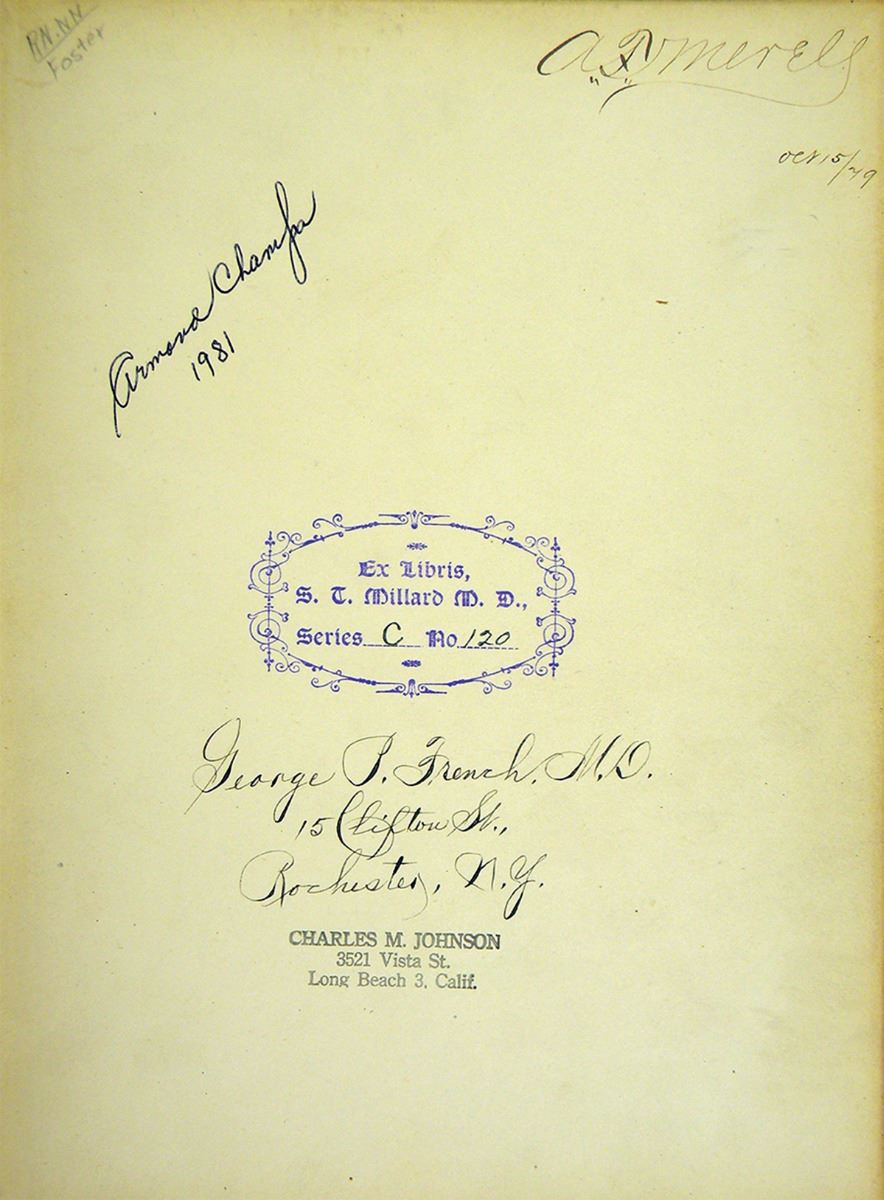 RN.NN
Foster
Oct 15/79
Armand Champa
1981
Ex Libris,
S. T. Millard M. D.,
Series C No 120
George P. French, M.D.
15 Clifton St.,
Rochester, N.Y.
CHARLES M. JOHNSON
3521 Vista St.
Long Beach 3, Calif.